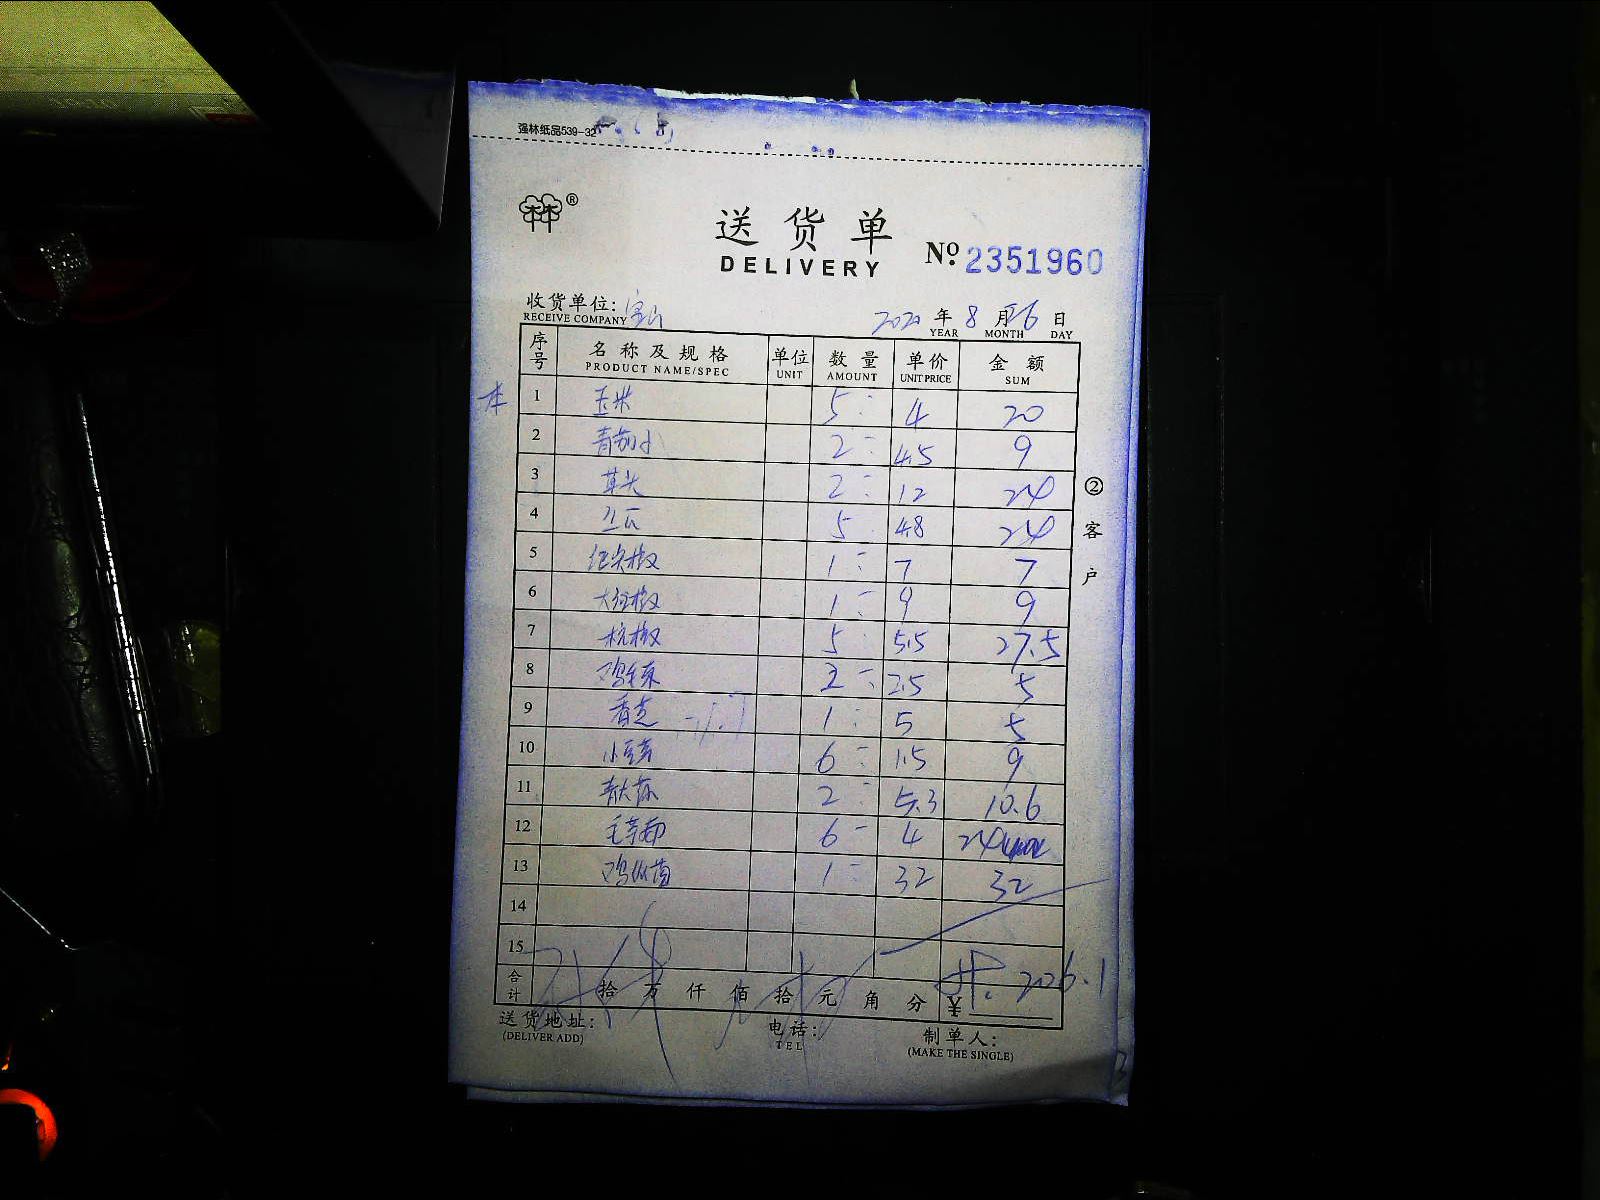 强林纸品539-32
林®
送货单
DELIVERY
№ 2351960
收货单位: 宝山 2020 年 8 月 26 日
RECEIVE COMPANY YEAR MONTH DAY
序号 名称及规格 单位 数量 单价 金额
PRODUCT NAME/SPEC UNIT AMOUNT UNIT PRICE SUM
本 1 玉米 5 4 20
2 青茄小 2 4.5 9
3 草头 2 12 24
4 丝瓜 5 4.8 24
5 红尖椒 1 7 7
6 大红椒 1 9 9
7 杭椒 5 5.5 27.5
8 鸡毛菜 2 2.5 5
9 香芝 1 5 5
10 小豆芽 6 1.5 9
11 青大蒜 2 5.3 10.6
12 毛芋艿 6 4 24
13 鸡枞菌 1 32 32
14
15
合计 拾 万 仟 佰 拾 元 角 分 ¥ 共. 206.1
送货地址: 电话: 制单人:
(DELIVER ADD) TEL (MAKE THE SINGLE)
②客户